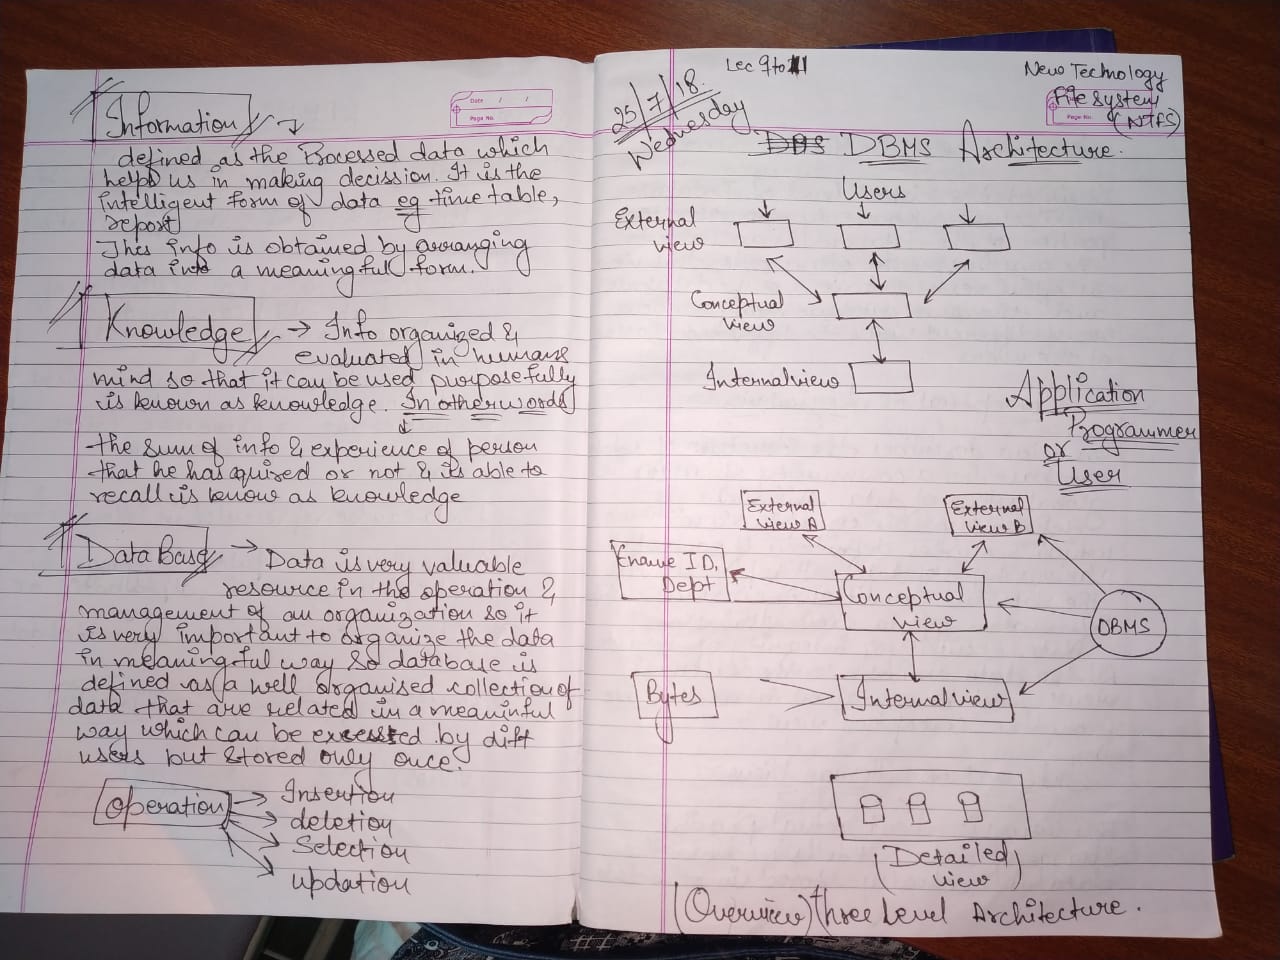 Information
defined as the Processed data which
helps us in making decission. It is the
intelligent form of data eg time table,
report
This info is obtained by arranging
data into a meaningful form.
Knowledge → Info organized &
evaluated in humans
mind so that it can be used purposefully
is known as knowledge. In other words
the sum of info & experience of person
that he has aquired or not & is able to
recall is know as knowledge
Data Base → Data is very valuable
resource in the operation &
management of an organization so it
is very important to organize the data
in meaningful way so database is
defined as a well organised collection of
data that are related in a meaninful
way which can be excessted by diff
users but stored only once.
Operation → Insertion
→ deletion
→ Selection
→ updation
Date / /
Page No.
25/7/18
Wednesday
Lec 9 to 11
New Technology
File system
(NTFS)
Page No.
DBMS Architecture.
Users
External
view
Conceptual
view
Internal view
Application
Programmer
or
User
External
view A
External
view B
Ename ID,
Dept
Conceptual
view
DBMS
Bytes
Internal view
(Detailed
view)
(Overview) three Level Architecture.